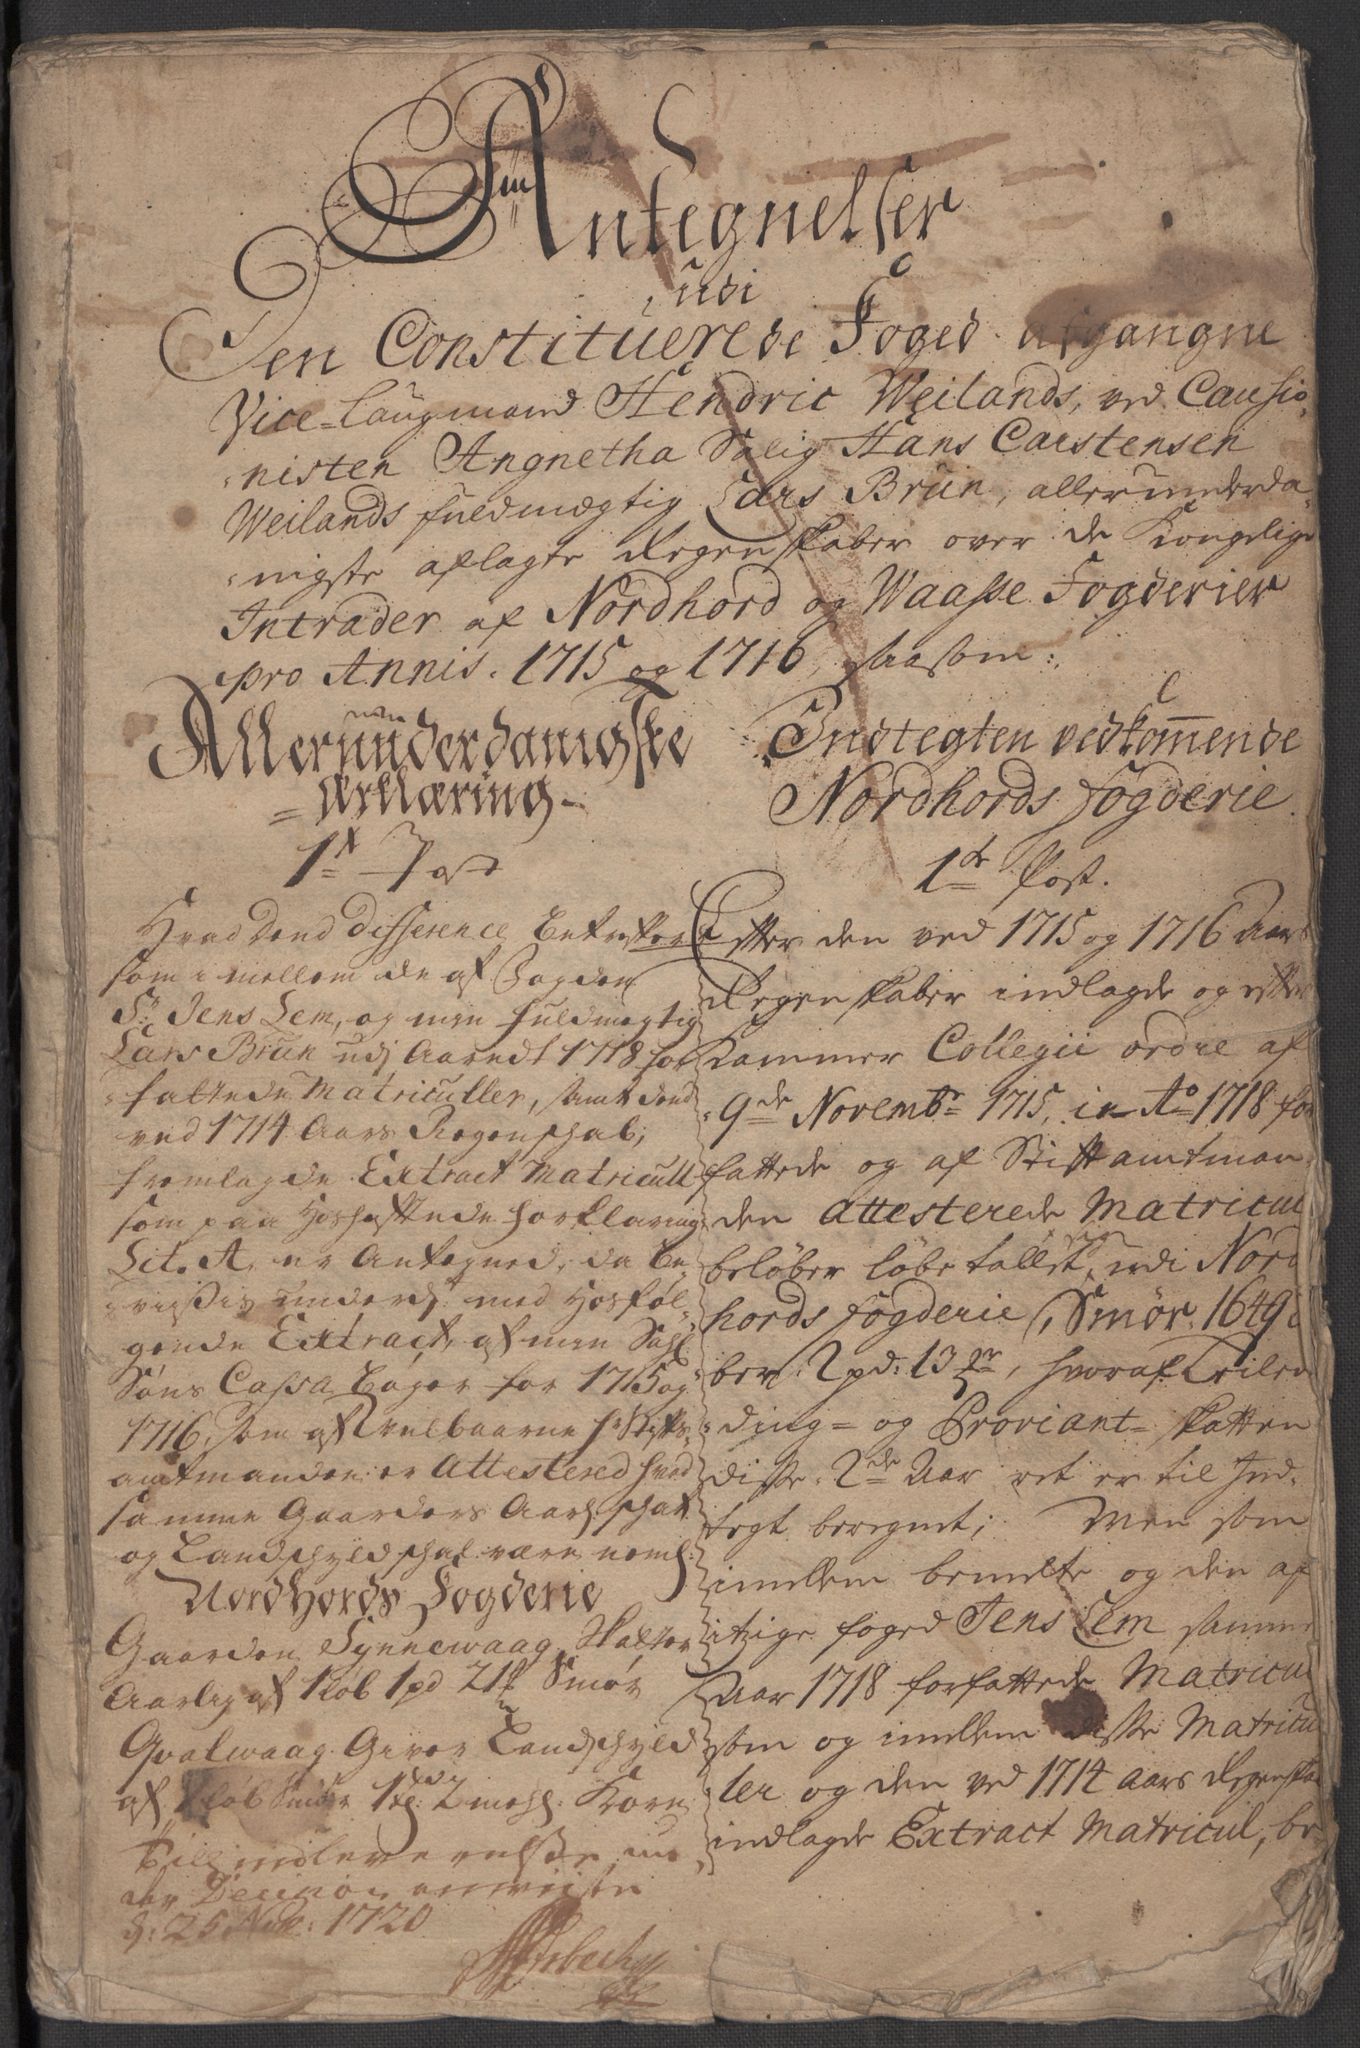 Antegnelser
udi
Den Constituerede Foged afgangne
Vice-Laugmand Hendric Weilands, ved Causio-
nisten Angnetha Salig Hans Carstensen
Weilands fuldmægtig Lars Brun, allerunderda-
nigste aflagte Regenskaber over de Kongelige
Intrader af Nordhord og Waasse Fogderier
pro Annis. 1715 og 1716, saasom:
Allerunderdanigste
Erklæring
1t Post
Hvad dend difference betreffer
som i mellem de af Fogden
Sr Jens Lem, og min fuldmegtig
Lars Brun udj Aaredt 1718 for-
fattede Matriculler, samt dend
ved 1714 Aars Regenschab,
fremlagde Extract Matricull
som paa Hoshæftede forklaring
Lit. A. er Antegned, da be-
vißis underd. med Hosføl-
gende Extract af min Sahl.
Søns Cassa bøger for 1715 og
1716, som af Welbaarne Hr Stifts-
amtmanden er Attestered hvad
samme Gaarders Aarl. schat
og Landschyld schal være neml.
Nordhords Fogderie
Gaarden Synnewaag Skatter
Aarlig af 1 løb 1 pd 21 Smør
Qvalwaag Giver Landschyld
af 1 løb Smør 1 td: 2 meh. Korn
Till indleverelse un-
der Decision anvises
d: 25 1720
Indtegten vedkommende
Nordhords Fogderie
1te Post.
Efter den ved 1715 og 1716 Aars
Regenskaber indlagde og efter
Cammer Collegii ordre af
9de Novembr 1715, in Ao 1718 for-
fattede og af Stiftamtman-
den Attesterede Matricul
beløber løbe tallet, udi Nord
hords fogderie, Smør 1649
ber. 2 pd: 13 , hvoraf Leilen-
ding- og Proviant-skatten
disse 2de Aar ret er til Ind-
tegt beregnet; Men som
imellem bemelte og den af
itzige foged Jens Lem samme
Aar 1718 forfattede Matricul
som og imellem disse Matricu-
ler og den ved 1714 aars Regenskab
indlagde Extract Matricul, be-